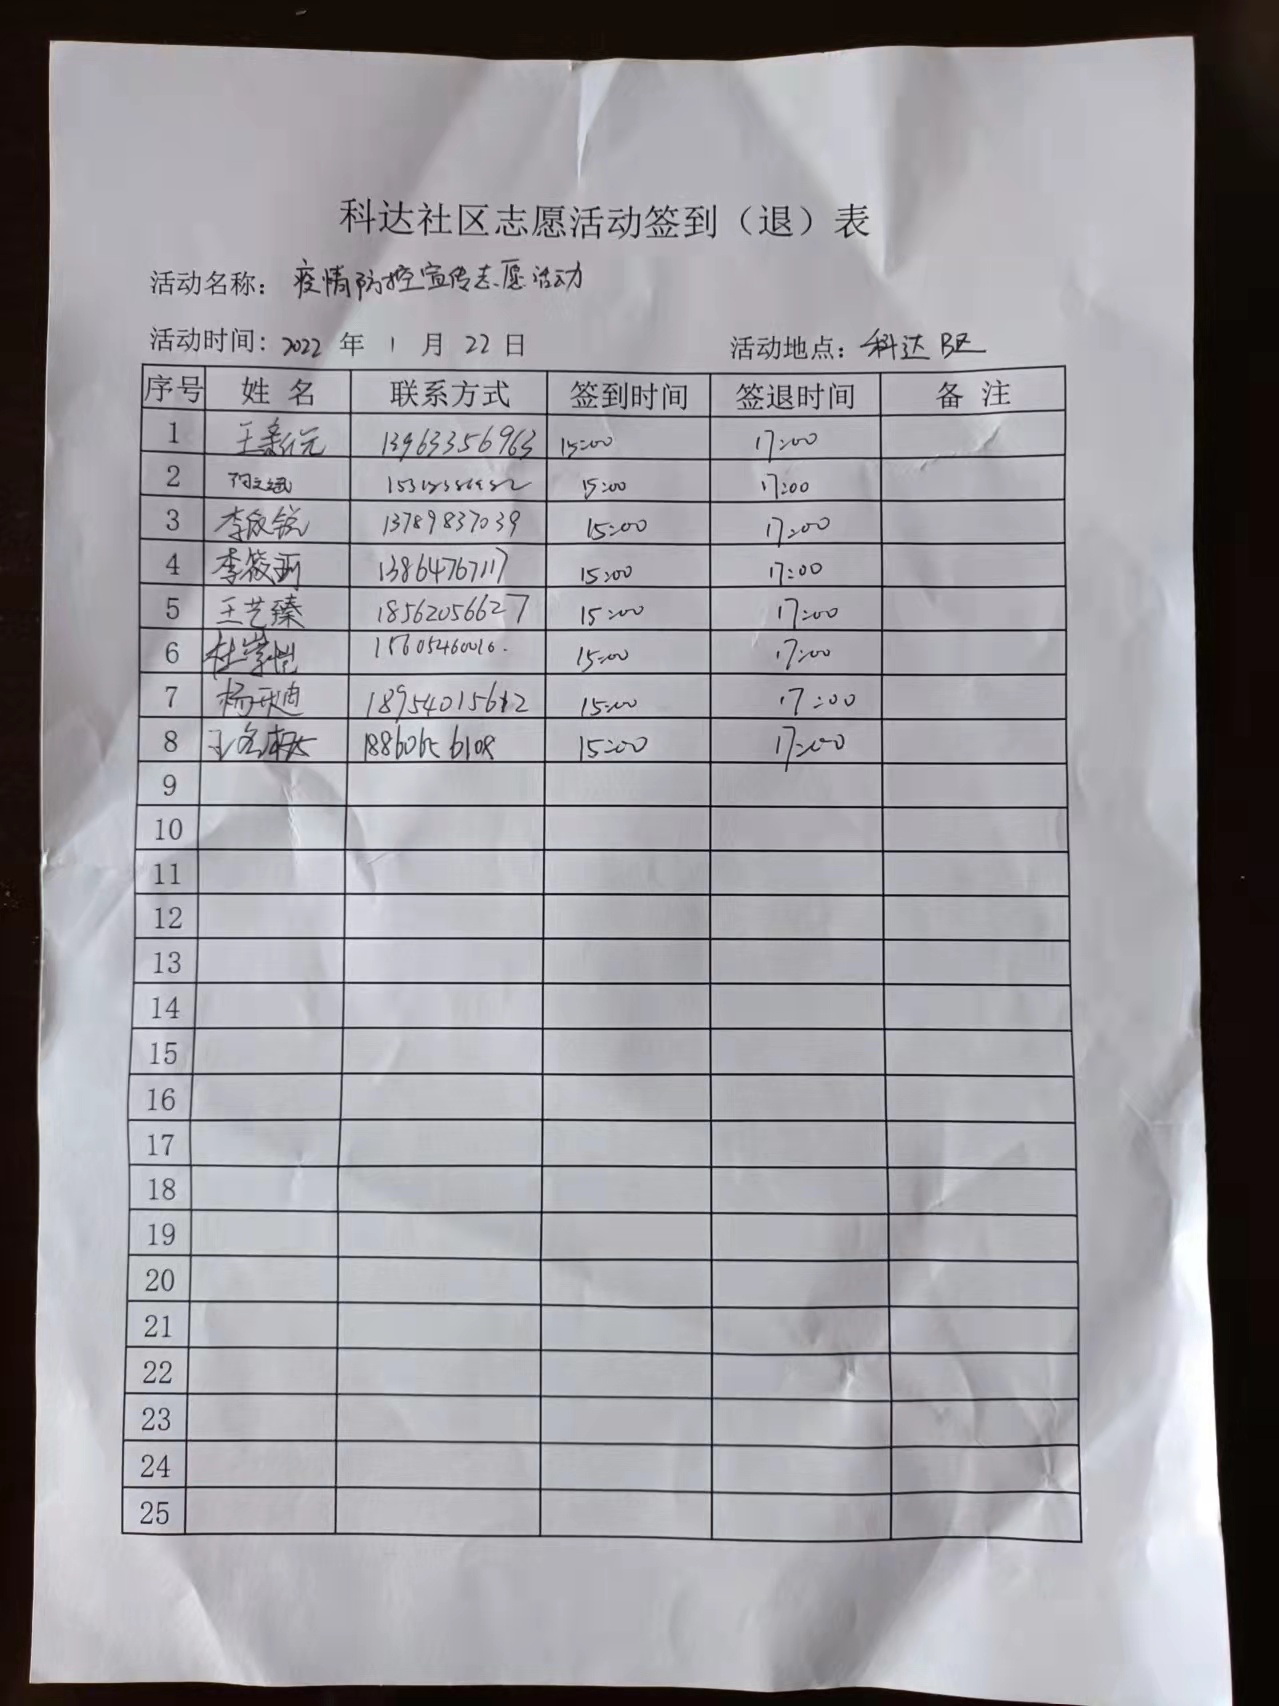 科达社区志愿活动签到（退）表
活动名称：疫情防控宣传志愿活动
活动时间：2022 年 1 月 22 日 活动地点：科达B区
序号 姓 名 联系方式 签到时间 签退时间 备 注
1 13963356963 15:00 17:00
2 15:00 17:00
3 13789837039 15:00 17:00
4 李筱雨 13864767117 15:00 17:00
5 王艺臻 18562056627 15:00 17:00
6 15605460016. 15:00 17:00
7 15:00 17:00
8 15:00 17:00
9
10
11
12
13
14
15
16
17
18
19
20
21
22
23
24
25